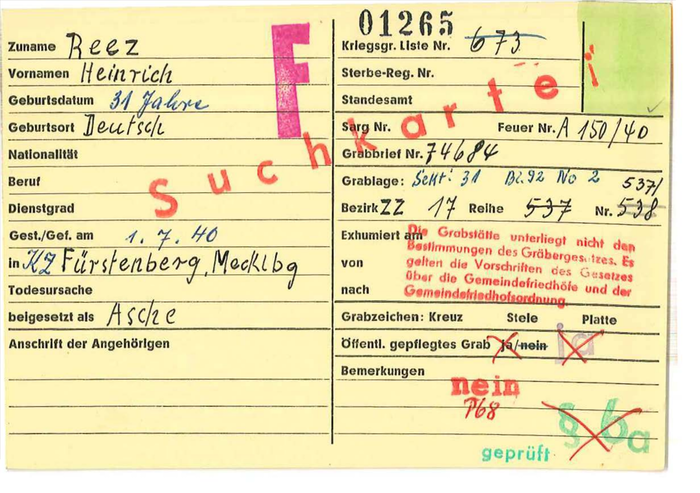 01265
F
Suchkartei
Zuname Reez
Vornamen Heinrich
Geburtsdatum 31 Jahre
Geburtsort Deutsch
Nationalität
Beruf
Dienstgrad
Gest./Gef. am 1. 7. 40
in KZ Fürstenberg, Mecklbg
Todesursache
beigesetzt als Asche
Anschrift der Angehörigen
Kriegsgr. Liste Nr. 673
Sterbe-Reg. Nr.
Standesamt
Sarg Nr. Feuer Nr. A 150/40
Grabbrief Nr. 74684
Grablage: Sekt: 31 Bl. 92 No 2 537/
Bezirk ZZ 17 Reihe 537 Nr. 538
Exhumiert am
von
nach
Die Grabstätte unterliegt nicht den
Bestimmungen des Gräbergesetzes. Es
gelten die Vorschriften des Gesetzes
über die Gemeindefriedhöfe und der
Gemeindefriedhofsordnung.
Grabzeichen: Kreuz Stele Platte
Öffentl. gepflegtes Grab ja/nein ja
Bemerkungen
nein
P68
§ 6a
geprüft